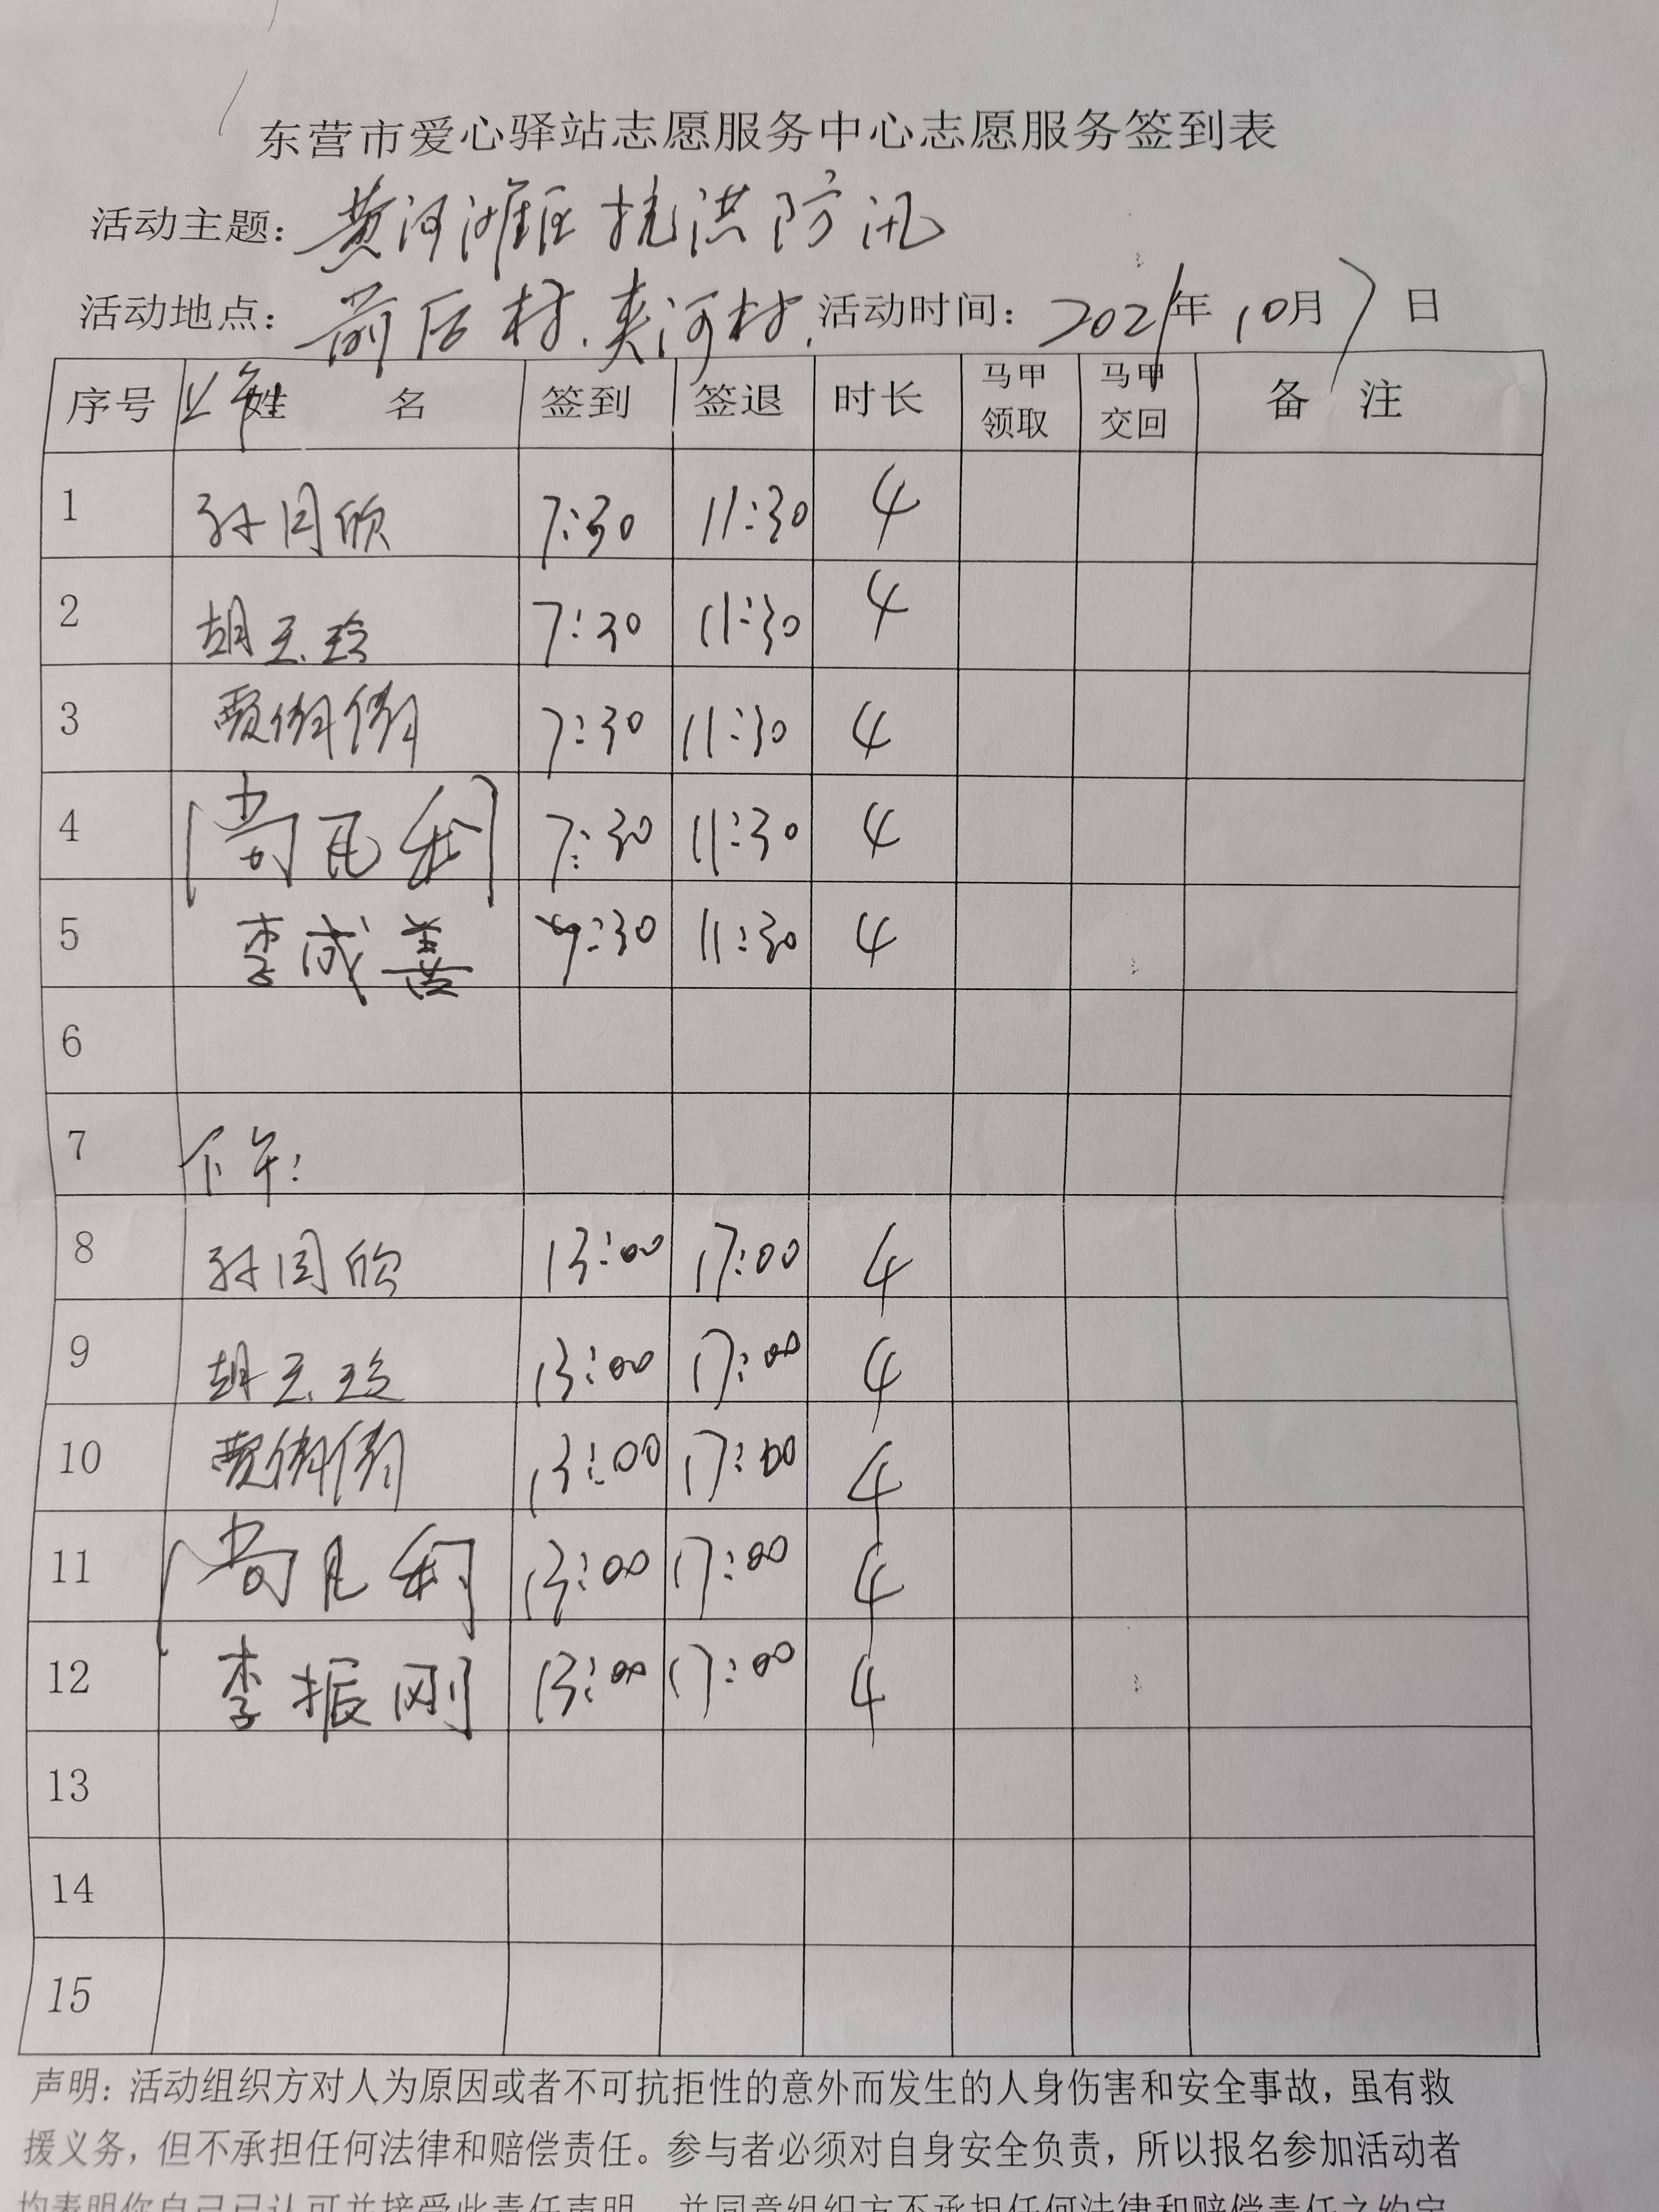 东营市爱心驿站志愿服务中心志愿服务签到表
活动主题：黄河滩区抗洪防汛
活动地点：前后村、夹河村、活动时间：2021年10月7日
序号 上午 姓名 签到 签退 时长 马甲领取 马甲交回 备注
1 孙同欣 7:30 11:30 4
2 胡玉玲 7:30 11:30 4
3 贾倩倩 7:30 11:30 4
4 7:30 11:30 4
5 李成善 7:30 11:30 4
6
7 下午：
8 孙同欣 13:00 17:00 4
9 胡玉玲 13:00 17:00 4
10 贾倩倩 13:00 17:00 4
11 13:00 17:00 4
12 李振刚 13:00 17:00 4
13
14
15
声明：活动组织方对人为原因或者不可抗拒性的意外而发生的人身伤害和安全事故，虽有救
援义务，但不承担任何法律和赔偿责任。参与者必须对自身安全负责，所以报名参加活动者
均表明你自己已认可并接受此责任声明，并同意组织方不承担任何法律和赔偿责任之约定